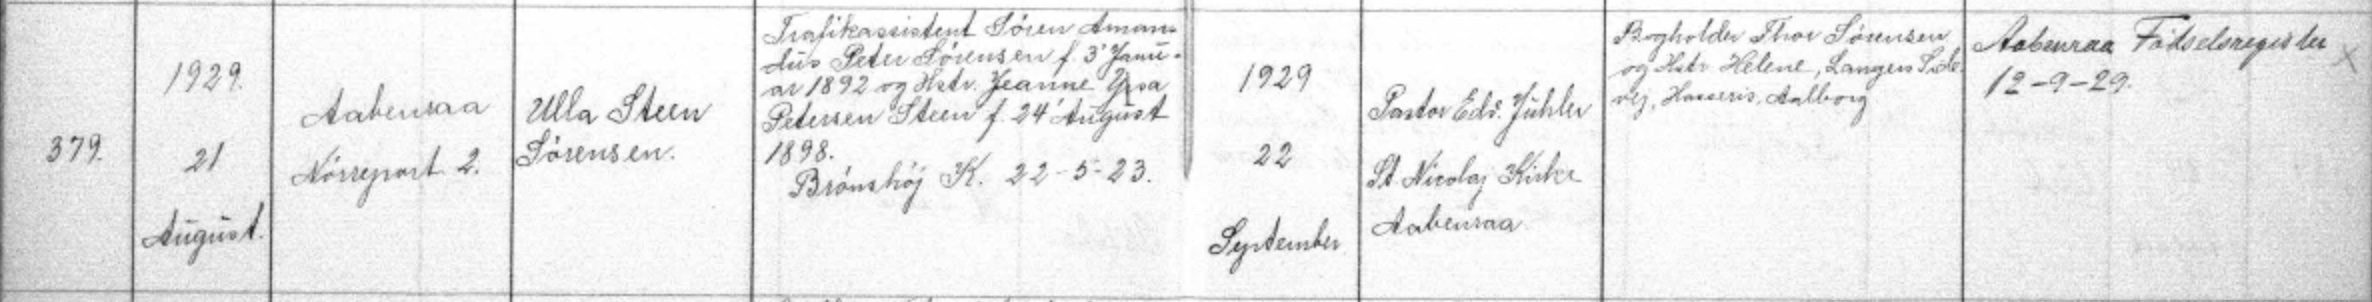 379.
1929.
21
August.
Aabenraa
Nørreport 2.
Ulla Steen
Sørensen.
Trafikassistent Søren Aman-
dus Peter Sørensen f. 3' Janu-
ar 1892 og Hstr. Jeanne Yrsa
Petersen Steen f. 24' August
1898.
Brønshøj K. 22-5-23.
1929
22
September
Pastor Edv. Juhler
St. Nicolaj Kirke
Aabenraa
Bogholder Thor Sørensen
og Hstr. Helene, Langers Side
vej, Hasseris, Aalborg
Aabenraa Fødselsregister
12-9-29.
X